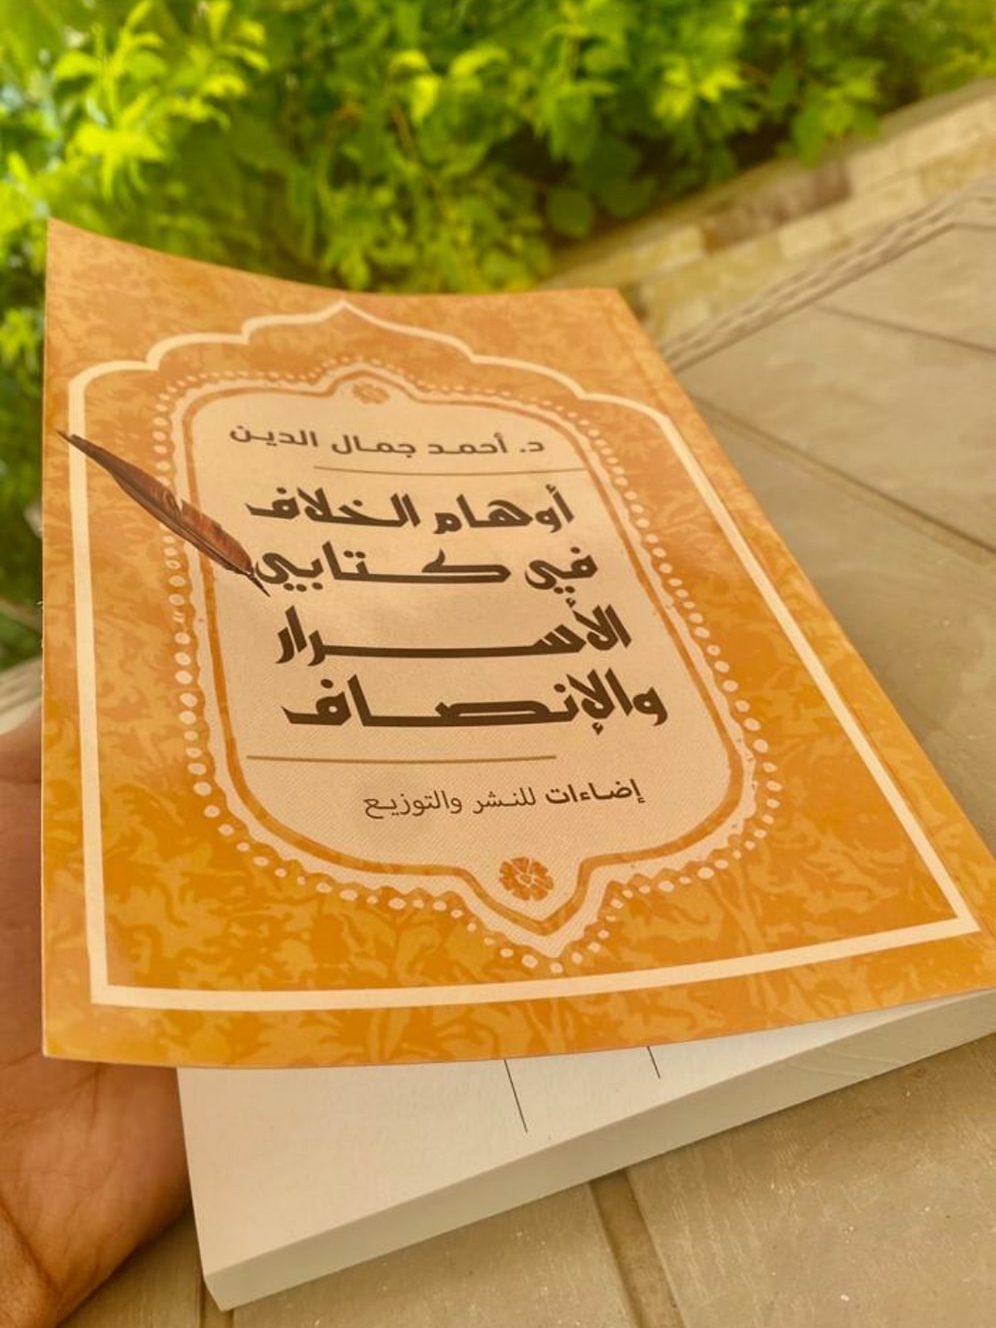 د. أحمد جمال الدين
أوهام الخلاف
في كتابي
الأسرار
والإنصاف
إضاءات للنشر والتوزيع